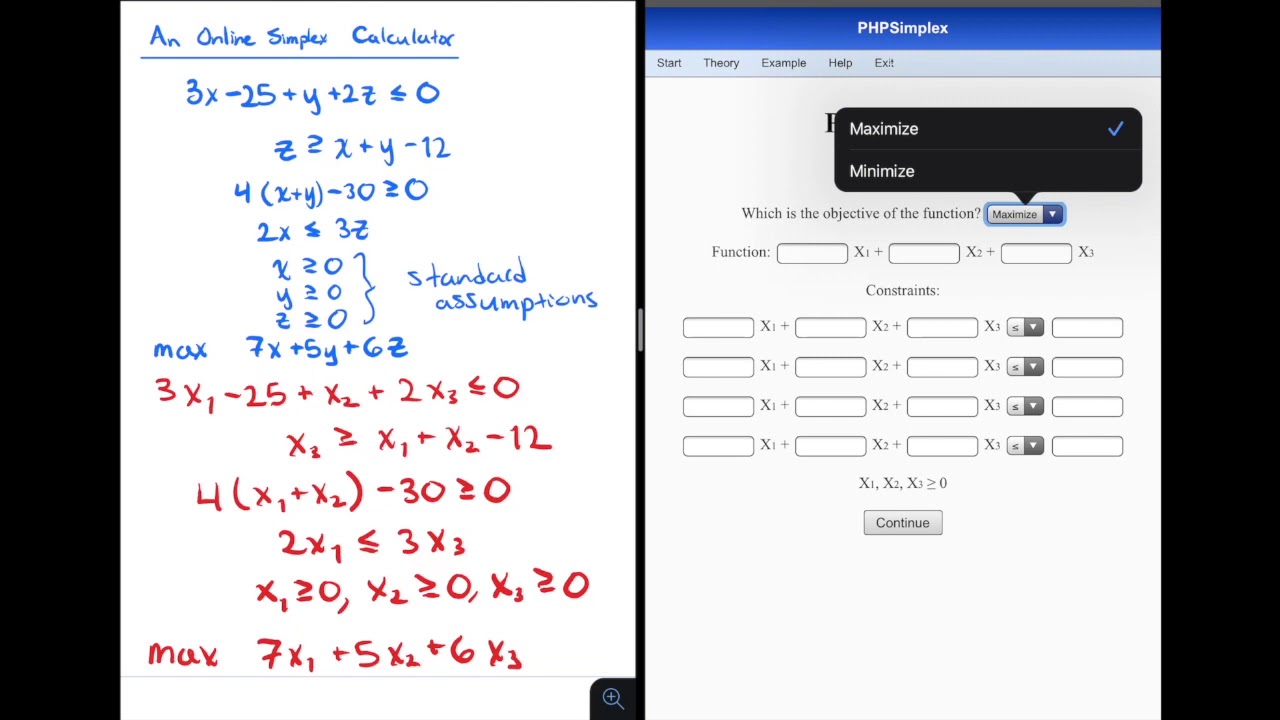 An Online Simplex Calculator
3x-25+y+2z ≤ 0
z ≥ x+y-12
4(x+y)-30 ≥ 0
2x ≤ 3z
x ≥ 0
y ≥ 0
z ≥ 0
standard
assumptions
max 7x+5y+6z
3x₁-25+x₂+2x₃ ≤ 0
x₃ ≥ x₁+x₂-12
4(x₁+x₂)-30 ≥ 0
2x₁ ≤ 3x₃
x₁ ≥ 0, x₂ ≥ 0, x₃ ≥ 0
max 7x₁+5x₂+6x₃
PHPSimplex
Start Theory Example Help Exit
Maximize
Minimize
Which is the objective of the function? Maximize
Function: X₁ + X₂ + X₃
Constraints:
X₁ + X₂ + X₃ ≤
X₁ + X₂ + X₃ ≤
X₁ + X₂ + X₃ ≤
X₁ + X₂ + X₃ ≤
X₁, X₂, X₃ ≥ 0
Continue